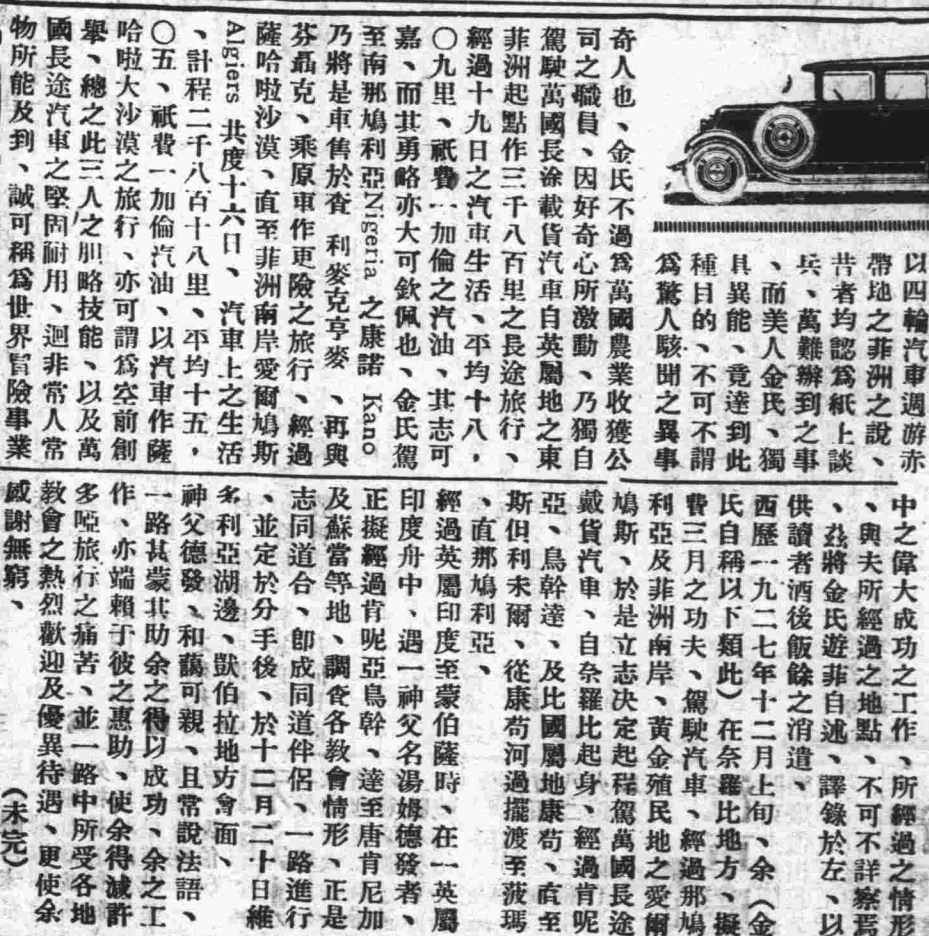 以四輪汽車週游赤
帶地之菲洲之說、
昔者均認爲紙上談
兵、萬難辦到之事
、而美人金氏、獨
具異能、竟達到此
種目的、不可不謂
爲驚人駭聞之異事
奇人也、金氏不過爲萬國農業收獲公
司之職員、因好奇心所激動、乃獨自
駕駛萬國長涂載貨汽車自英屬地之東
菲洲起點作三千八百里之長途旅行、
經過十九日之汽車生活、平均十八，
〇九里、祇費一加倫之汽油、其志可
嘉、而其勇略亦大可欽佩也、金氏駕
至南那鳩利亞Nigeria 之康諾 Kano
乃將是車售於査 利麥克亨麥 、再與
芬聶克、乘原車作更險之旅行、經過
薩哈啦沙漠、直至菲洲南岸愛爾鳩斯
Algiers 共度十六日、汽車上之生活
、計程二千八百十八里、平均十五，
〇五、祇費一加倫汽油、以汽車作薩
哈啦大沙漠之旅行、亦可謂爲空前創
舉、總之此三人之胆略技能、以及萬
國長途汽車之堅固耐用、迥非常人常
物所能及到、誠可稱爲世界冒險事業
中之偉大成功之工作、所經過之情形
、與夫所經過之地點、不可不詳察焉
、茲將金氏遊菲自述、譯錄於左、以
供讀者酒後飯餘之消遣、
西歷一九二七年十二月上旬、余（金
氏自稱以下類此）在奈羅比地方、擬
費三月之功夫、駕駛汽車、經過那鳩
利亞及菲洲南岸、黃金殖民地之愛爾
鳩斯、於是立志决定起程駕萬國長途
戴貨汽車、自奈羅比起身、經過肯呢
亞、烏幹達、及比國屬地康苟、直至
斯但利未爾、從康苟河過擺渡至菠瑪
、直那鳩利亞、
經過英屬印度至蒙伯薩時、在一英屬
印度舟中、遇一神父名湯姆德發者、
正擬經過肯呢亞烏幹、達至唐肯尼加
及蘇當等地、調查各教會情形、正是
志同道合、卽成同道伴侶、一路進行
、並定於分手後、於十二月二十日維
多利亞湖邊、獃伯拉地方會面、
神父德發、和藹可親、且常説法語、
一路甚蒙其助余之得以成功、余之工
作、亦端賴于彼之惠助、使余得減許
多啞旅行之痛苦、並一路中所受各地
教會之熱烈歡迎及優異待遇、更使余
感謝無窮、 （未完）